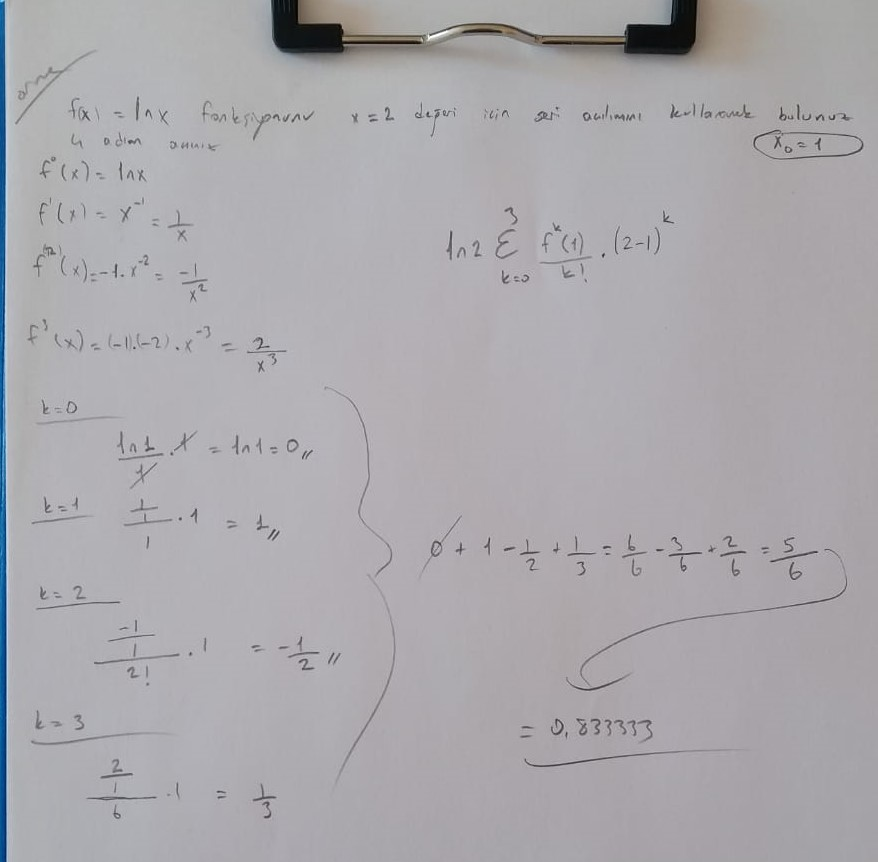 örnek
f(x) = lnx fonksiyonunu x=2 değeri için seri açılımını kullanarak bulunuz
4 adım alınız
x₀ = 1
f⁰(x) = lnx
f'(x) = x⁻¹ = 1/x
f⁽²⁾(x) = -1.x⁻² = -1/x²
f³(x) = (-1).(-2).x⁻³ = 2/x³
ln2 Σ k=0 3 fᵏ(1)/k! . (2-1)ᵏ
k=0
ln1/1 . 1 = ln1 = 0,,
k=1 1/1/1 . 1 = 1,,
k=2
-1/1/2! . 1 = -1/2 ,,
k=3
2/1/6 . 1 = 1/3
0 + 1 - 1/2 + 1/3 = 6/6 - 3/6 + 2/6 = 5/6
= 0,833333